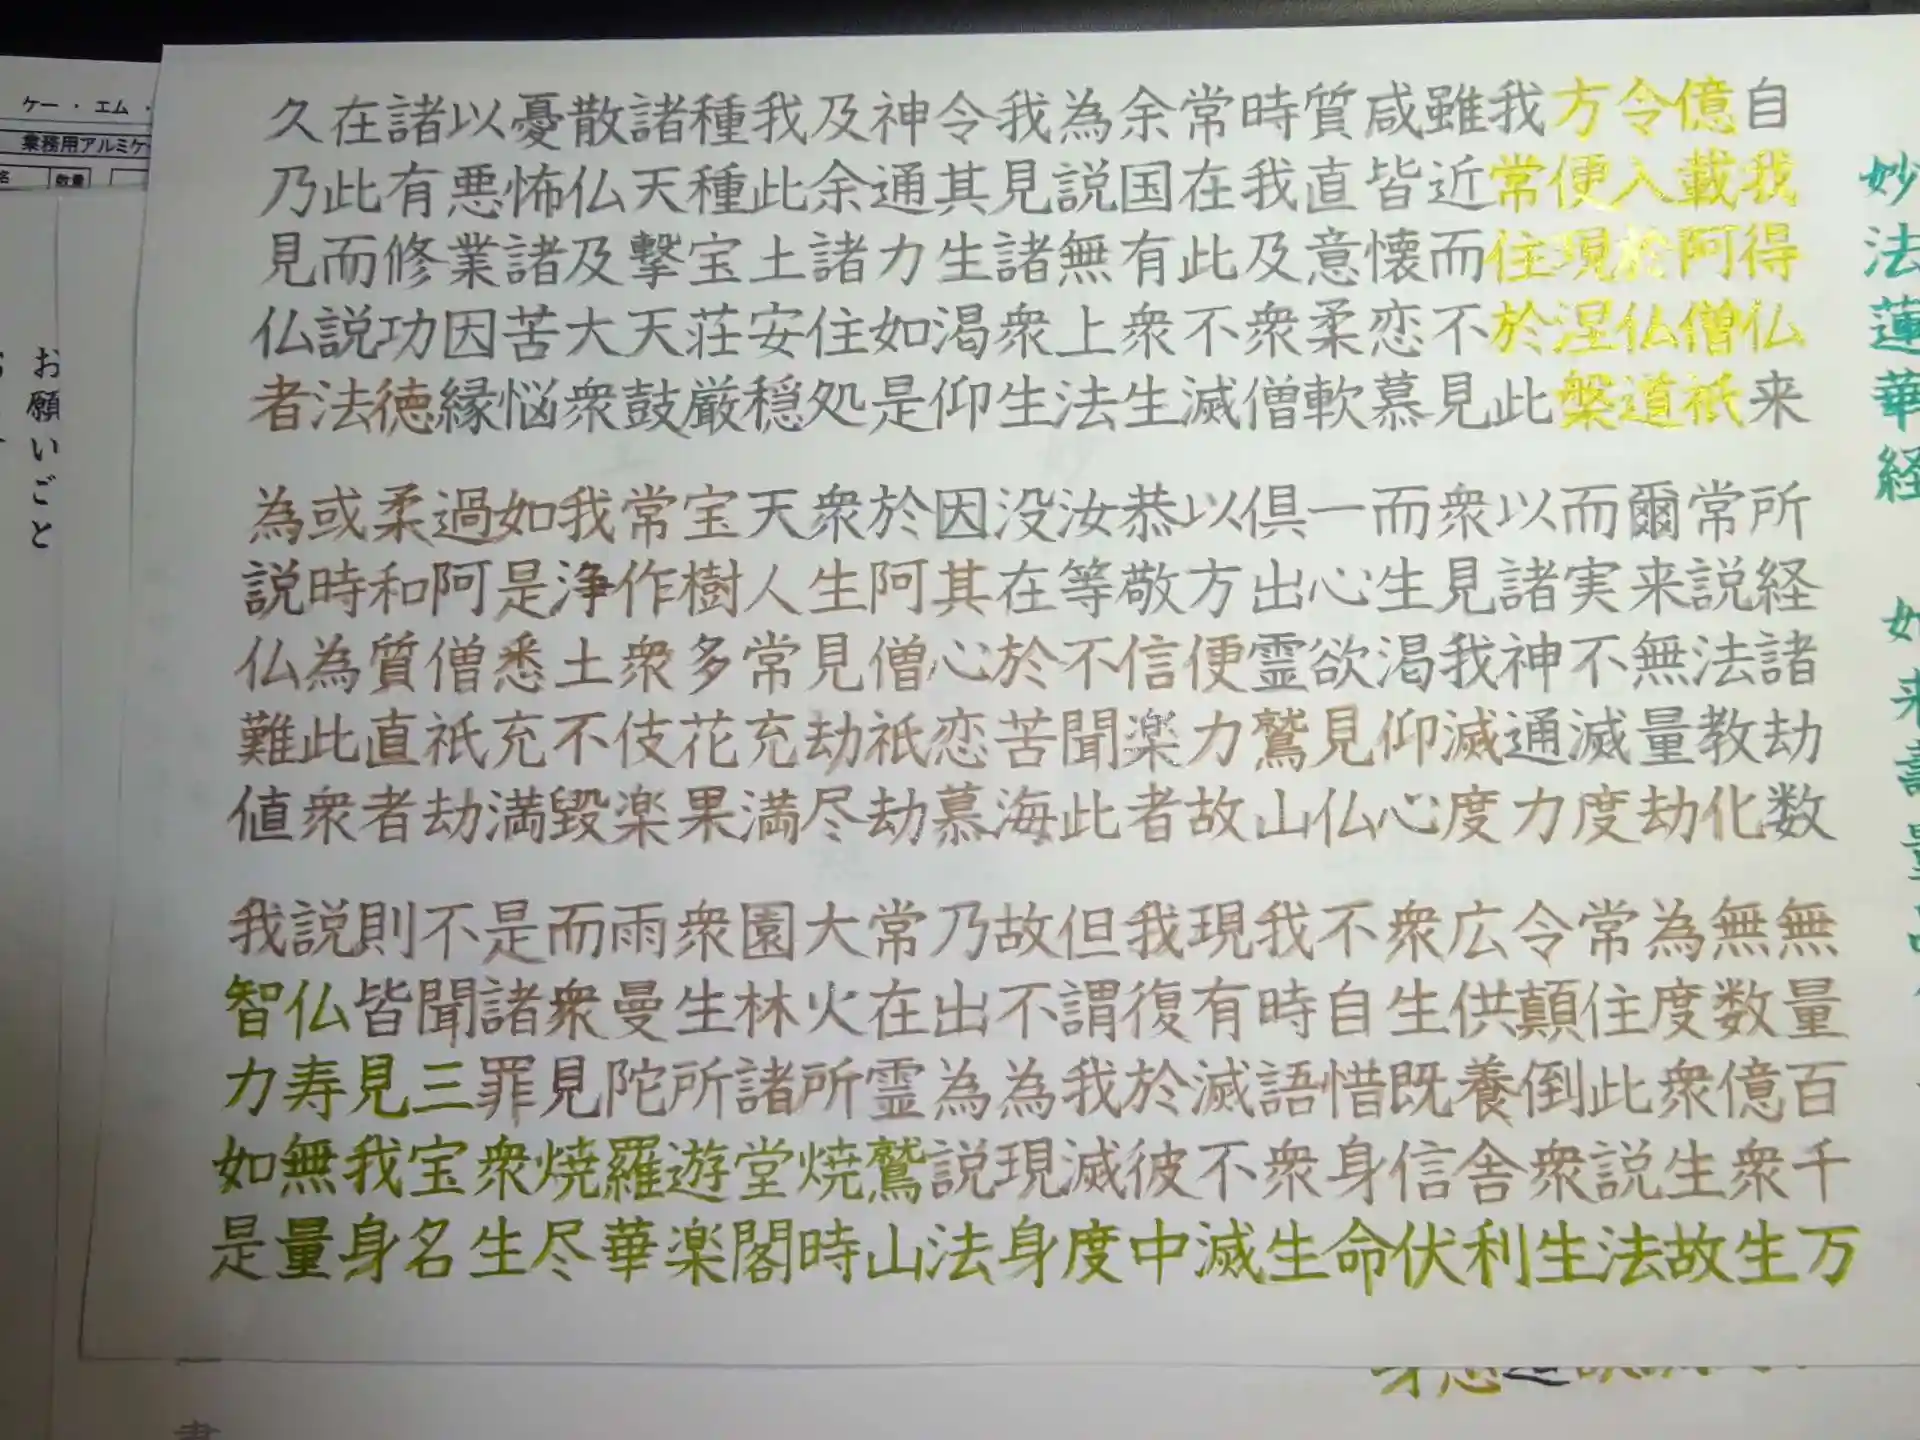 妙法蓮華経 如来壽量品
自我得仏来 所経諸劫数 無量百千万
億載阿僧祇 常説法教化 無数億衆生
令入於仏道 爾来無量劫 為度衆生故
方便現涅槃 而実不滅度 常住此説法
我常住於此 以諸神通力 令顛倒衆生
雖近而不見 衆見我滅度 広供養舎利
咸皆懐恋慕 而生渇仰心 衆生既信伏
質直意柔軟 一心欲見仏 不自惜身命
時我及衆僧 倶出霊鷲山 我時語衆生
常在此不滅 以方便力故 現有滅不滅
余国有衆生 恭敬信楽者 我復於彼中
為説無上法 汝等不聞此 但謂我滅度
我見諸衆生 没在於苦海 故不為現身
令其生渇仰 因其心恋慕 乃出為説法
神通力如是 於阿僧祇劫 常在霊鷲山
及余諸住処 衆生見劫尽 大火所焼時
我此土安穏 天人常充満 園林諸堂閣
種種宝荘厳 宝樹多花果 衆生所遊楽
諸天撃天鼓 常作衆伎楽 雨曼陀羅華
散仏及大衆 我浄土不毀 而衆見焼尽
憂怖諸苦悩 如是悉充満 是諸罪衆生
以悪業因縁 過阿僧祇劫 不聞三宝名
諸有修功徳 柔和質直者 則皆見我身
在此而説法 或時為此衆 説仏寿無量
久乃見仏者 為説仏難値 我智力如是
ケー・エム・
業務用アルミケ
名 数量
お願いごと